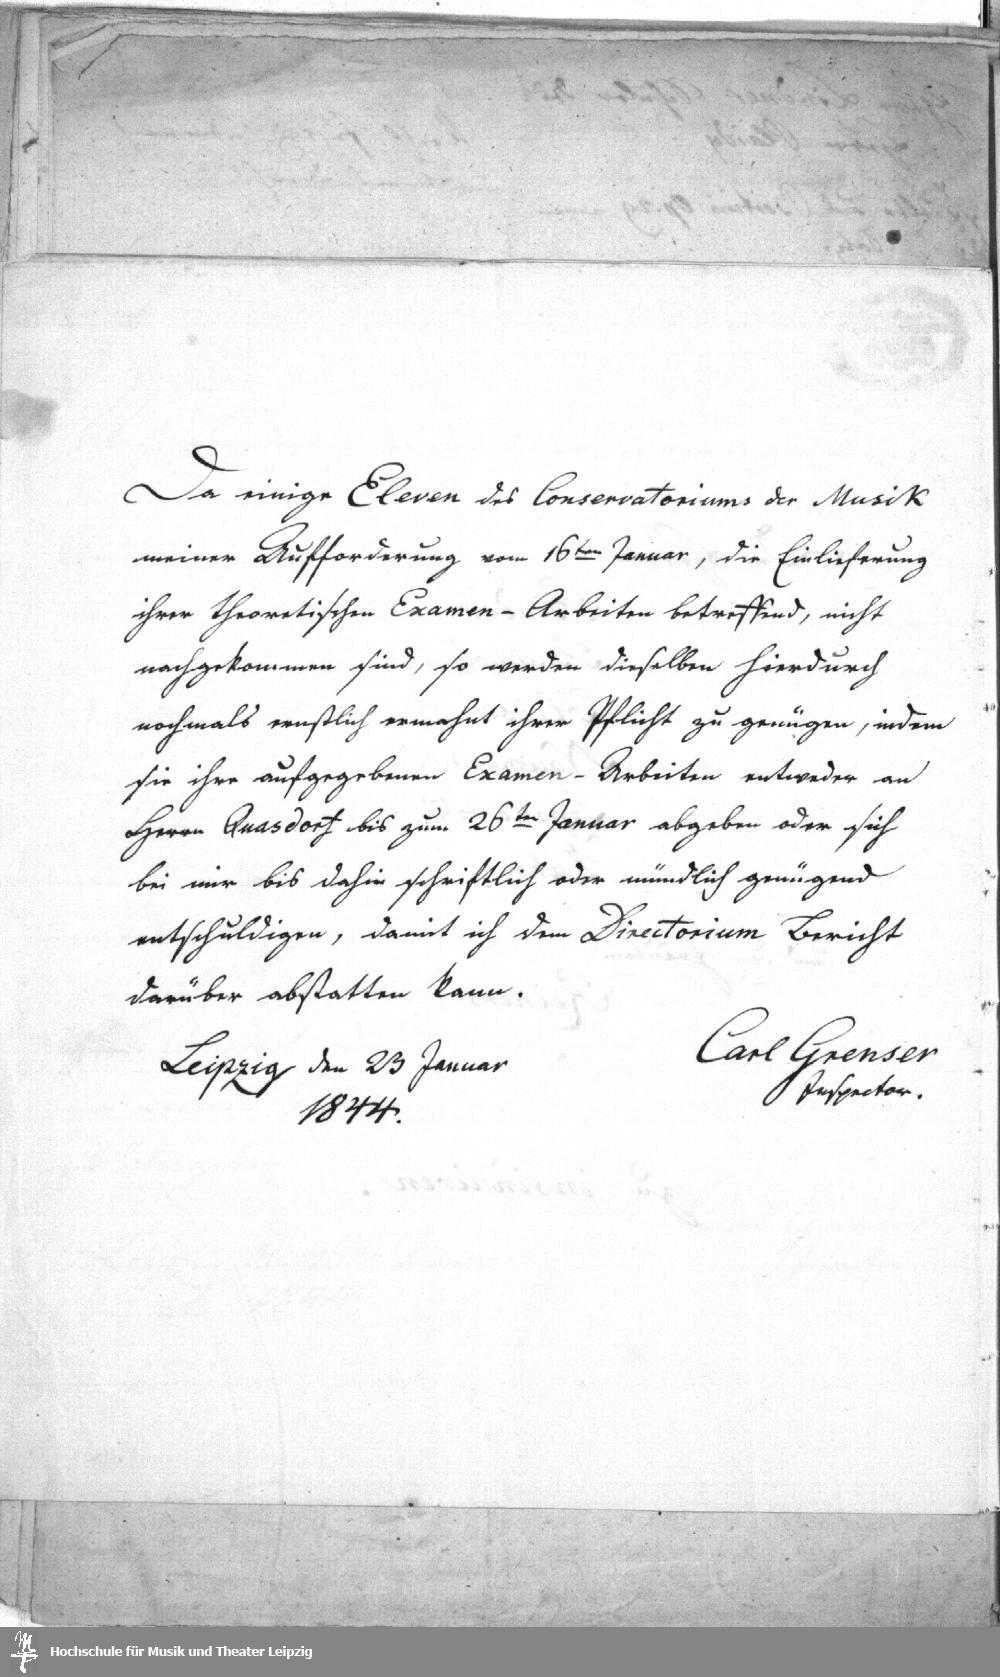 Da einige Eleven des Conservatoriums der Musik
meiner Aufforderung vom 16ten Januar, die Einlieferung
ihrer theoretischen Examen-Arbeiten betreffend, nicht
nachgekommen sind, so werden dieselben hierdurch
nochmals ernstlich ermahnt ihrer Pflicht zu genügen, indem
sie ihre aufgegebenen Examen-Arbeiten entweder an
Herrn Quasdorf bis zum 26ten Januar abgeben oder sich
bei mir bis dahin schriftlich oder mündlich genügend
entschuldigen, damit ich dem Directorium Bericht
darüber abstatten kann.
Leipzig den 23 Januar
1844.
Carl Grenser
Inspector.
Hochschule für Musik und Theater Leipzig